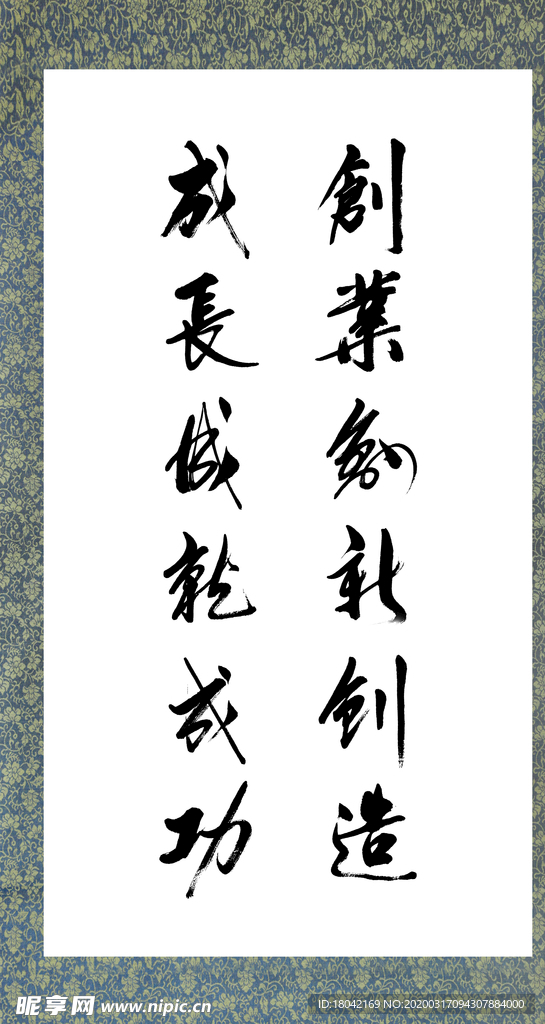 創業創新創造
成長成就成功
昵享网 www.nipic.cn
ID:18042169 NO:20200317094307884000